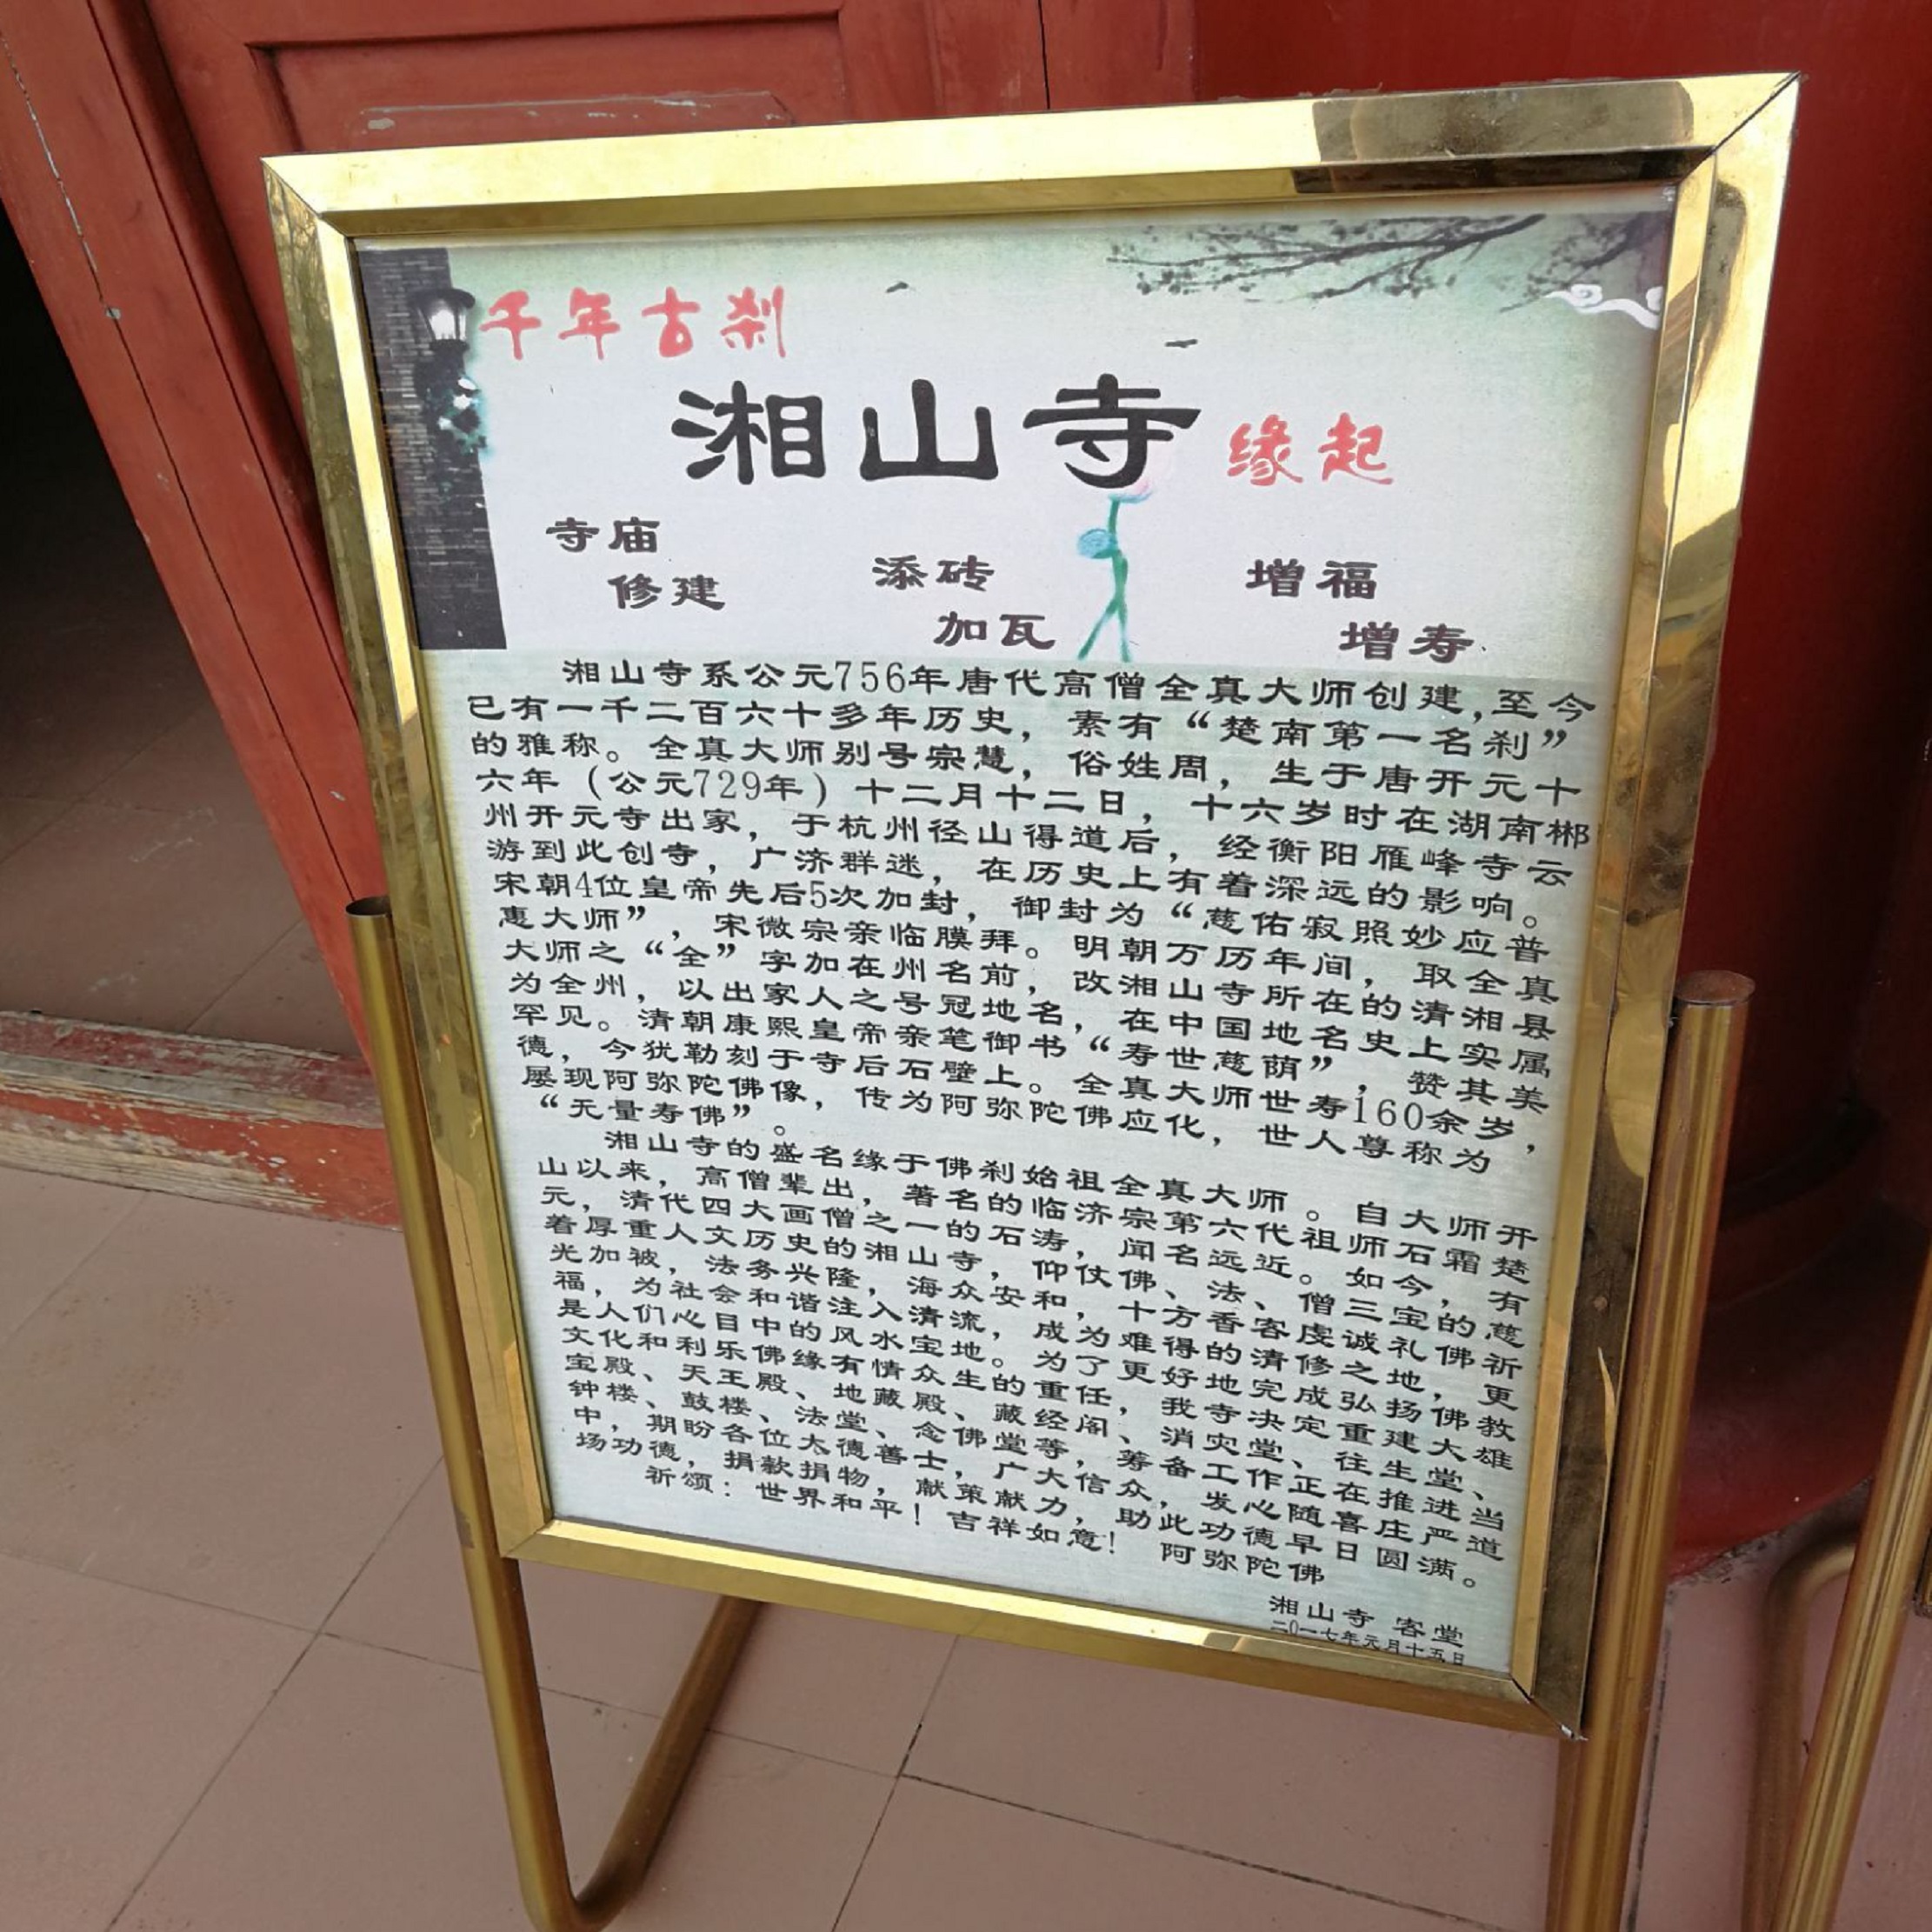 千年古刹
湘山寺 缘起
寺庙
修建
添砖
加瓦
增福
增寿
湘山寺系公元756年唐代高僧全真大师创建,至今
已有一千二百六十多年历史，素有“楚南第一名刹”
的雅称。全真大师别号宗慧，俗姓周，生于唐开元十
六年（公元729年）十二月十二日，十六岁时在湖南郴
州开元寺出家，于杭州径山得道后，经衡阳雁峰寺云
游到此创寺，广济群迷，在历史上有着深远的影响。
宋朝4位皇帝先后5次加封，御封为“慈佑寂照妙应普
惠大师”，宋微宗亲临膜拜。明朝万历年间，取全真
大师之“全”字加在州名前，改湘山寺所在的清湘县
为全州，以出家人之号冠地名，在中国地名史上实属
罕见。清朝康熙皇帝亲笔御书“寿世慈荫”，赞其美
德，今犹勒刻于寺后石壁上。全真大师世寿160余岁，
屡现阿弥陀佛像，传为阿弥陀佛应化，世人尊称为
“无量寿佛”。
湘山寺的盛名缘于佛刹始祖全真大师。自大师开
山以来，高僧辈出，著名的临济宗第六代祖师石霜楚
元，清代四大画僧之一的石涛，闻名远近。如今，有
着厚重人文历史的湘山寺，仰仗佛、法、僧三宝的慈
光加被，法务兴隆，海众安和，十方香客虔诚礼佛祈
福，为社会和谐注入清流，成为难得的清修之地，更
是人们心目中的风水宝地。为了更好地完成弘扬佛教
文化和利乐佛缘有情众生的重任，我寺决定重建大雄
宝殿、天王殿、地藏殿、藏经阁、消灾堂、往生堂、
钟楼、鼓楼、法堂、念佛堂等，筹备工作正在推进当
中，期盼各位大德善士，广大信众，发心随喜庄严道
场功德，捐款捐物，献策献力，助此功德早日圆满。
祈颂：世界和平！吉祥如意！ 阿弥陀佛
湘山寺 客堂
二0一七年元月十五日